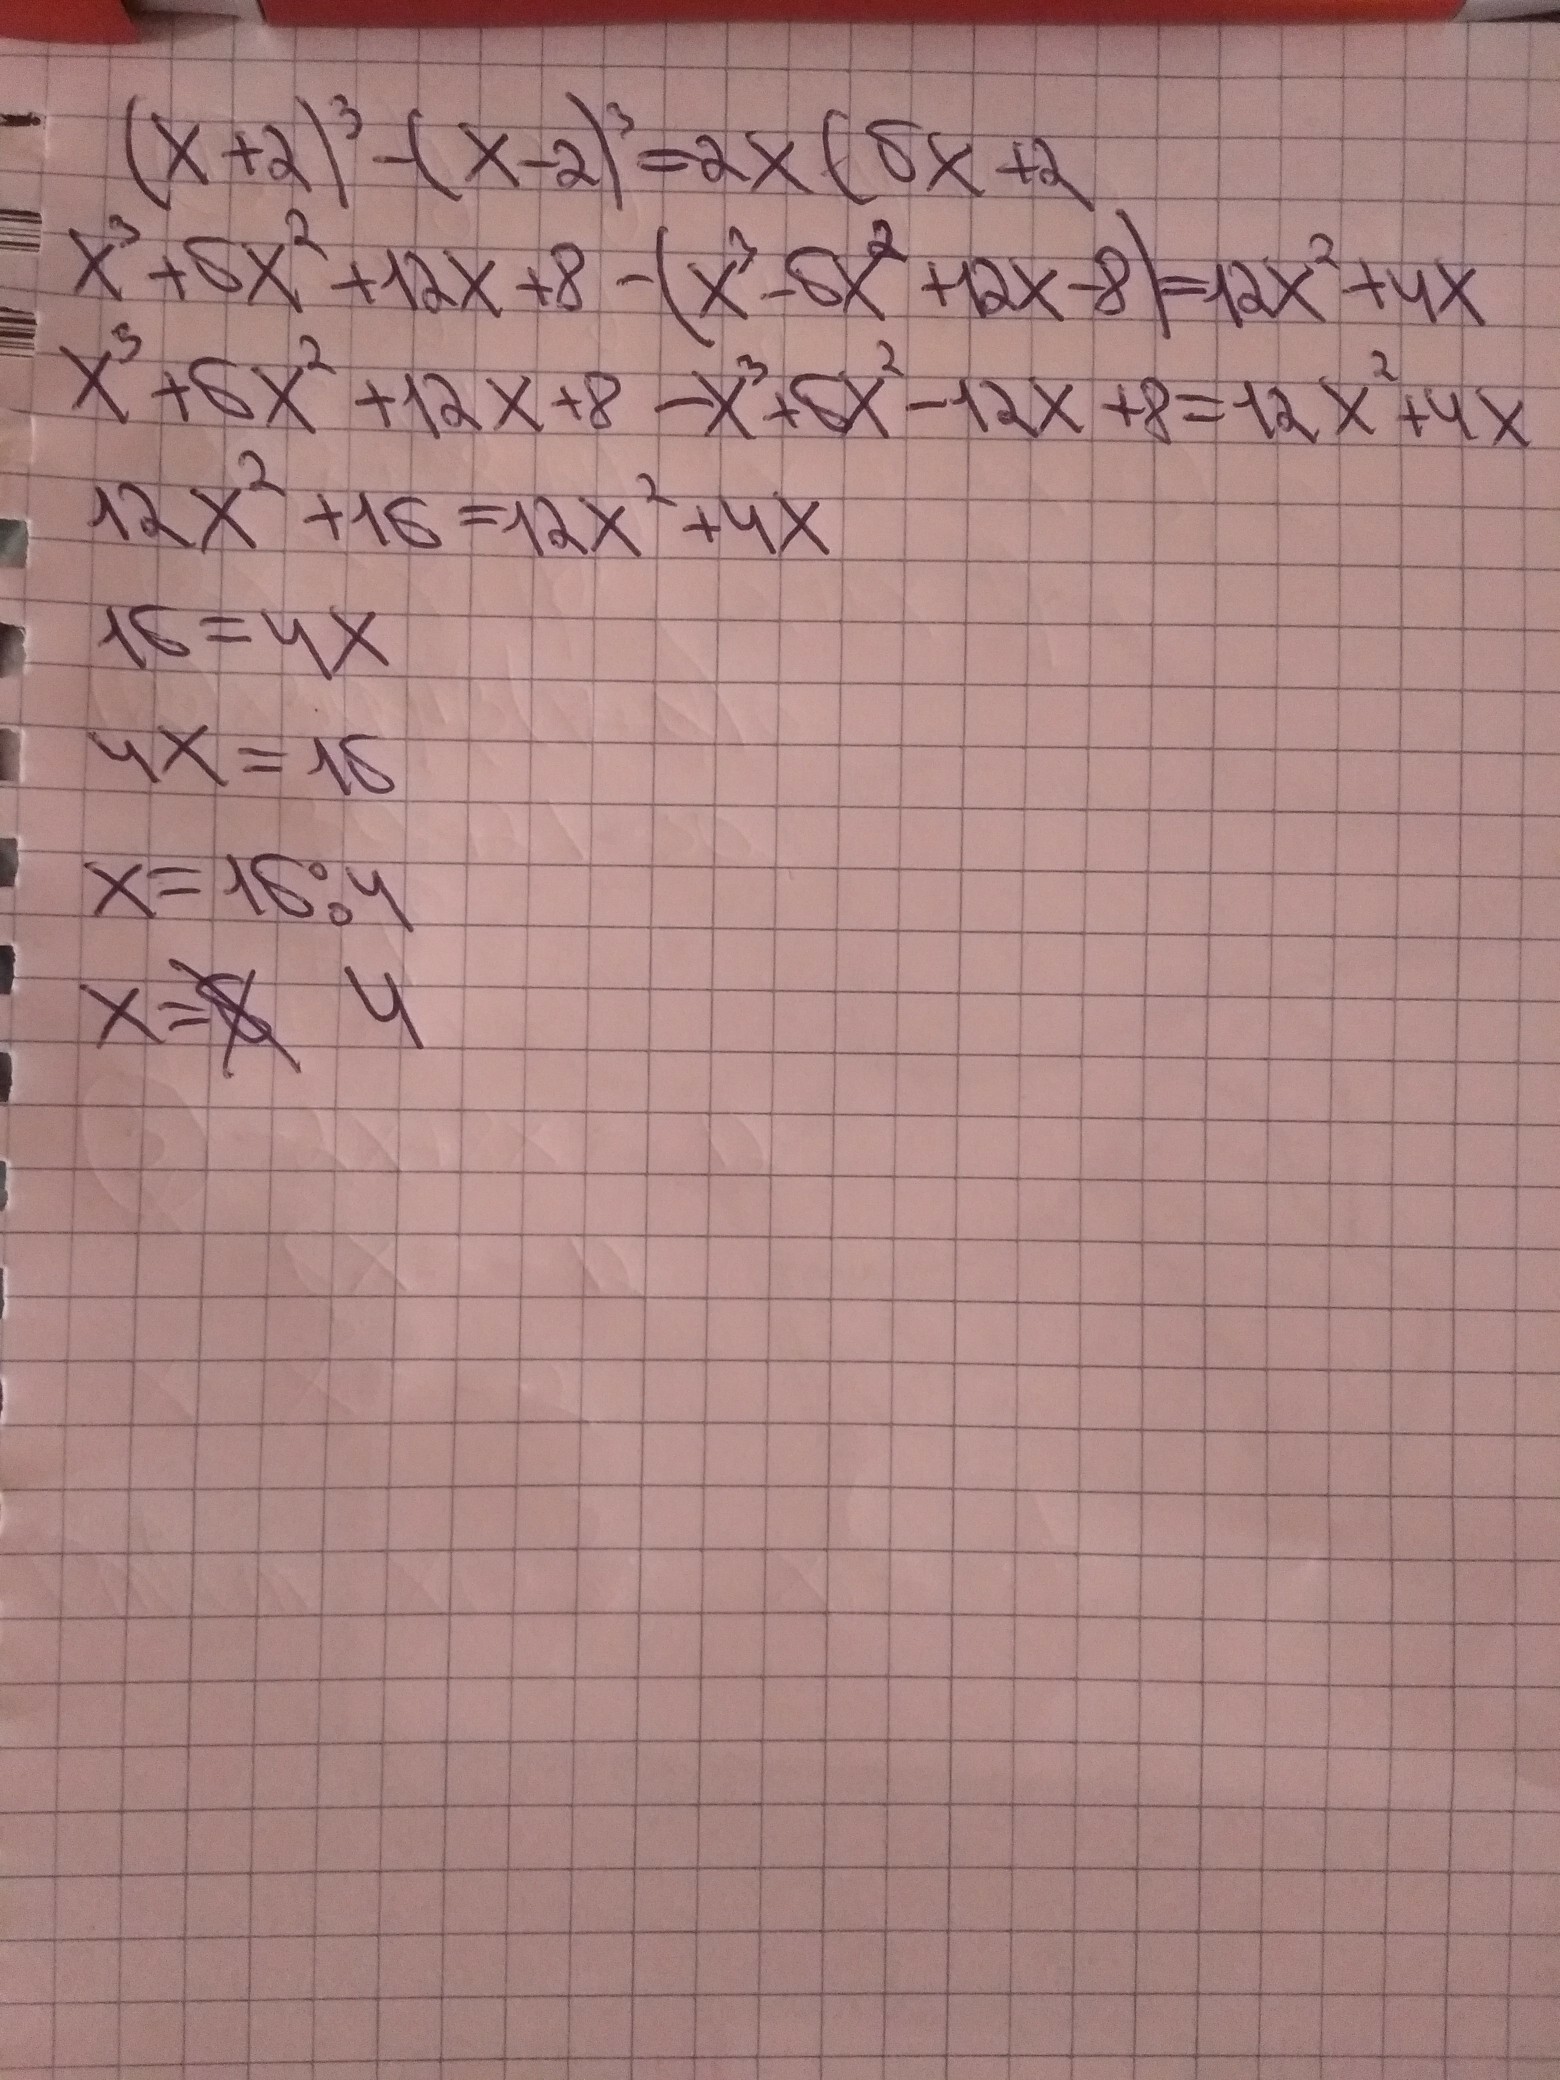 (x+2)³-(x-2)³=2x(6x+2
x³+6x²+12x+8-(x³-6x²+12x-8)=12x²+4x
x³+6x²+12x+8-x³+6x²-12x+8=12x²+4x
12x²+16=12x²+4x
16=4x
4x=16
x=16:4
x= 4